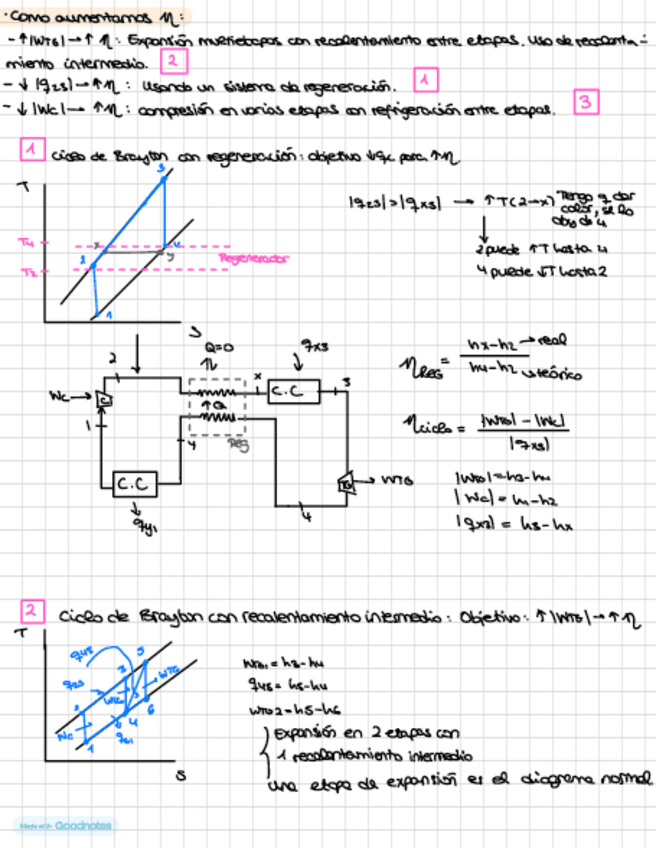 · Como aumentamos η:
- ↑|WTG| → ↑ η: Expansión multietapas con recalentamiento entre etapas. Uso de recalenta-
miento intermedio. 2
- ↓ |q23| → ↑η: Usando un sistema de regeneración. 1
- ↓ |Wc| → ↑η: compresión en varias etapas con refrigeración entre etapas. 3
1 Ciclo de Brayton con regeneración: objetivo ↓qc para ↑η
T
3
T4
x
4
y
2
T2
Regenerador
1
S
|q23| > |qx3| → ↑T(2→x) Tengo q dar
calor, se lo
doy de 4
2 puede ↑T hasta 4
4 puede ↓T hasta 2
2
Q=0
qx3
Wc → C
x
C.C
3
↑Q
1
4
Reg
C.C
TG → WTG
4
qy1
ηREG = hx-h2 → real
h4-h2 → teórico
ηciclo = |WTG| - |Wc|
|qx3|
|WTG| = h3-h4
|Wc| = h1-h2
|qx3| = h3-hx
2 Ciclo de Brayton con recalentamiento intermedio: Objetivo: ↑|WTG| → ↑η
T
q45
3
5
q23
WTG
WTG
2
4
6
Wc
q61
1
S
WTG1 = h3-h4
q45 = h5-h4
WTG2 = h5-h6
Expansión en 2 etapas con
1 recalentamiento intermedio
una etapa de expansión es el diagrama normal
Made with Goodnotes